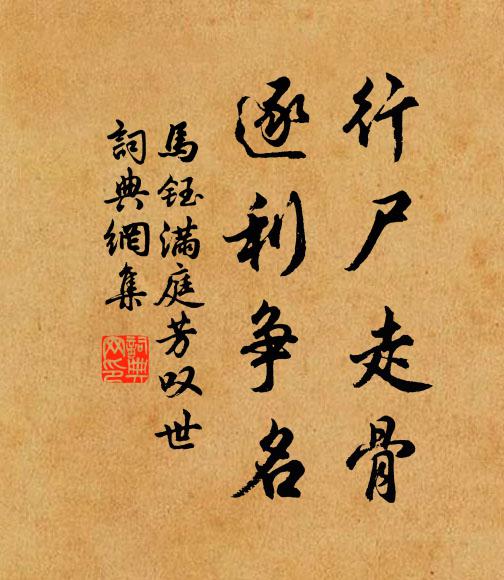 行尸走骨
逐利争名
馬鈺满庭芳叹世
詞典網集